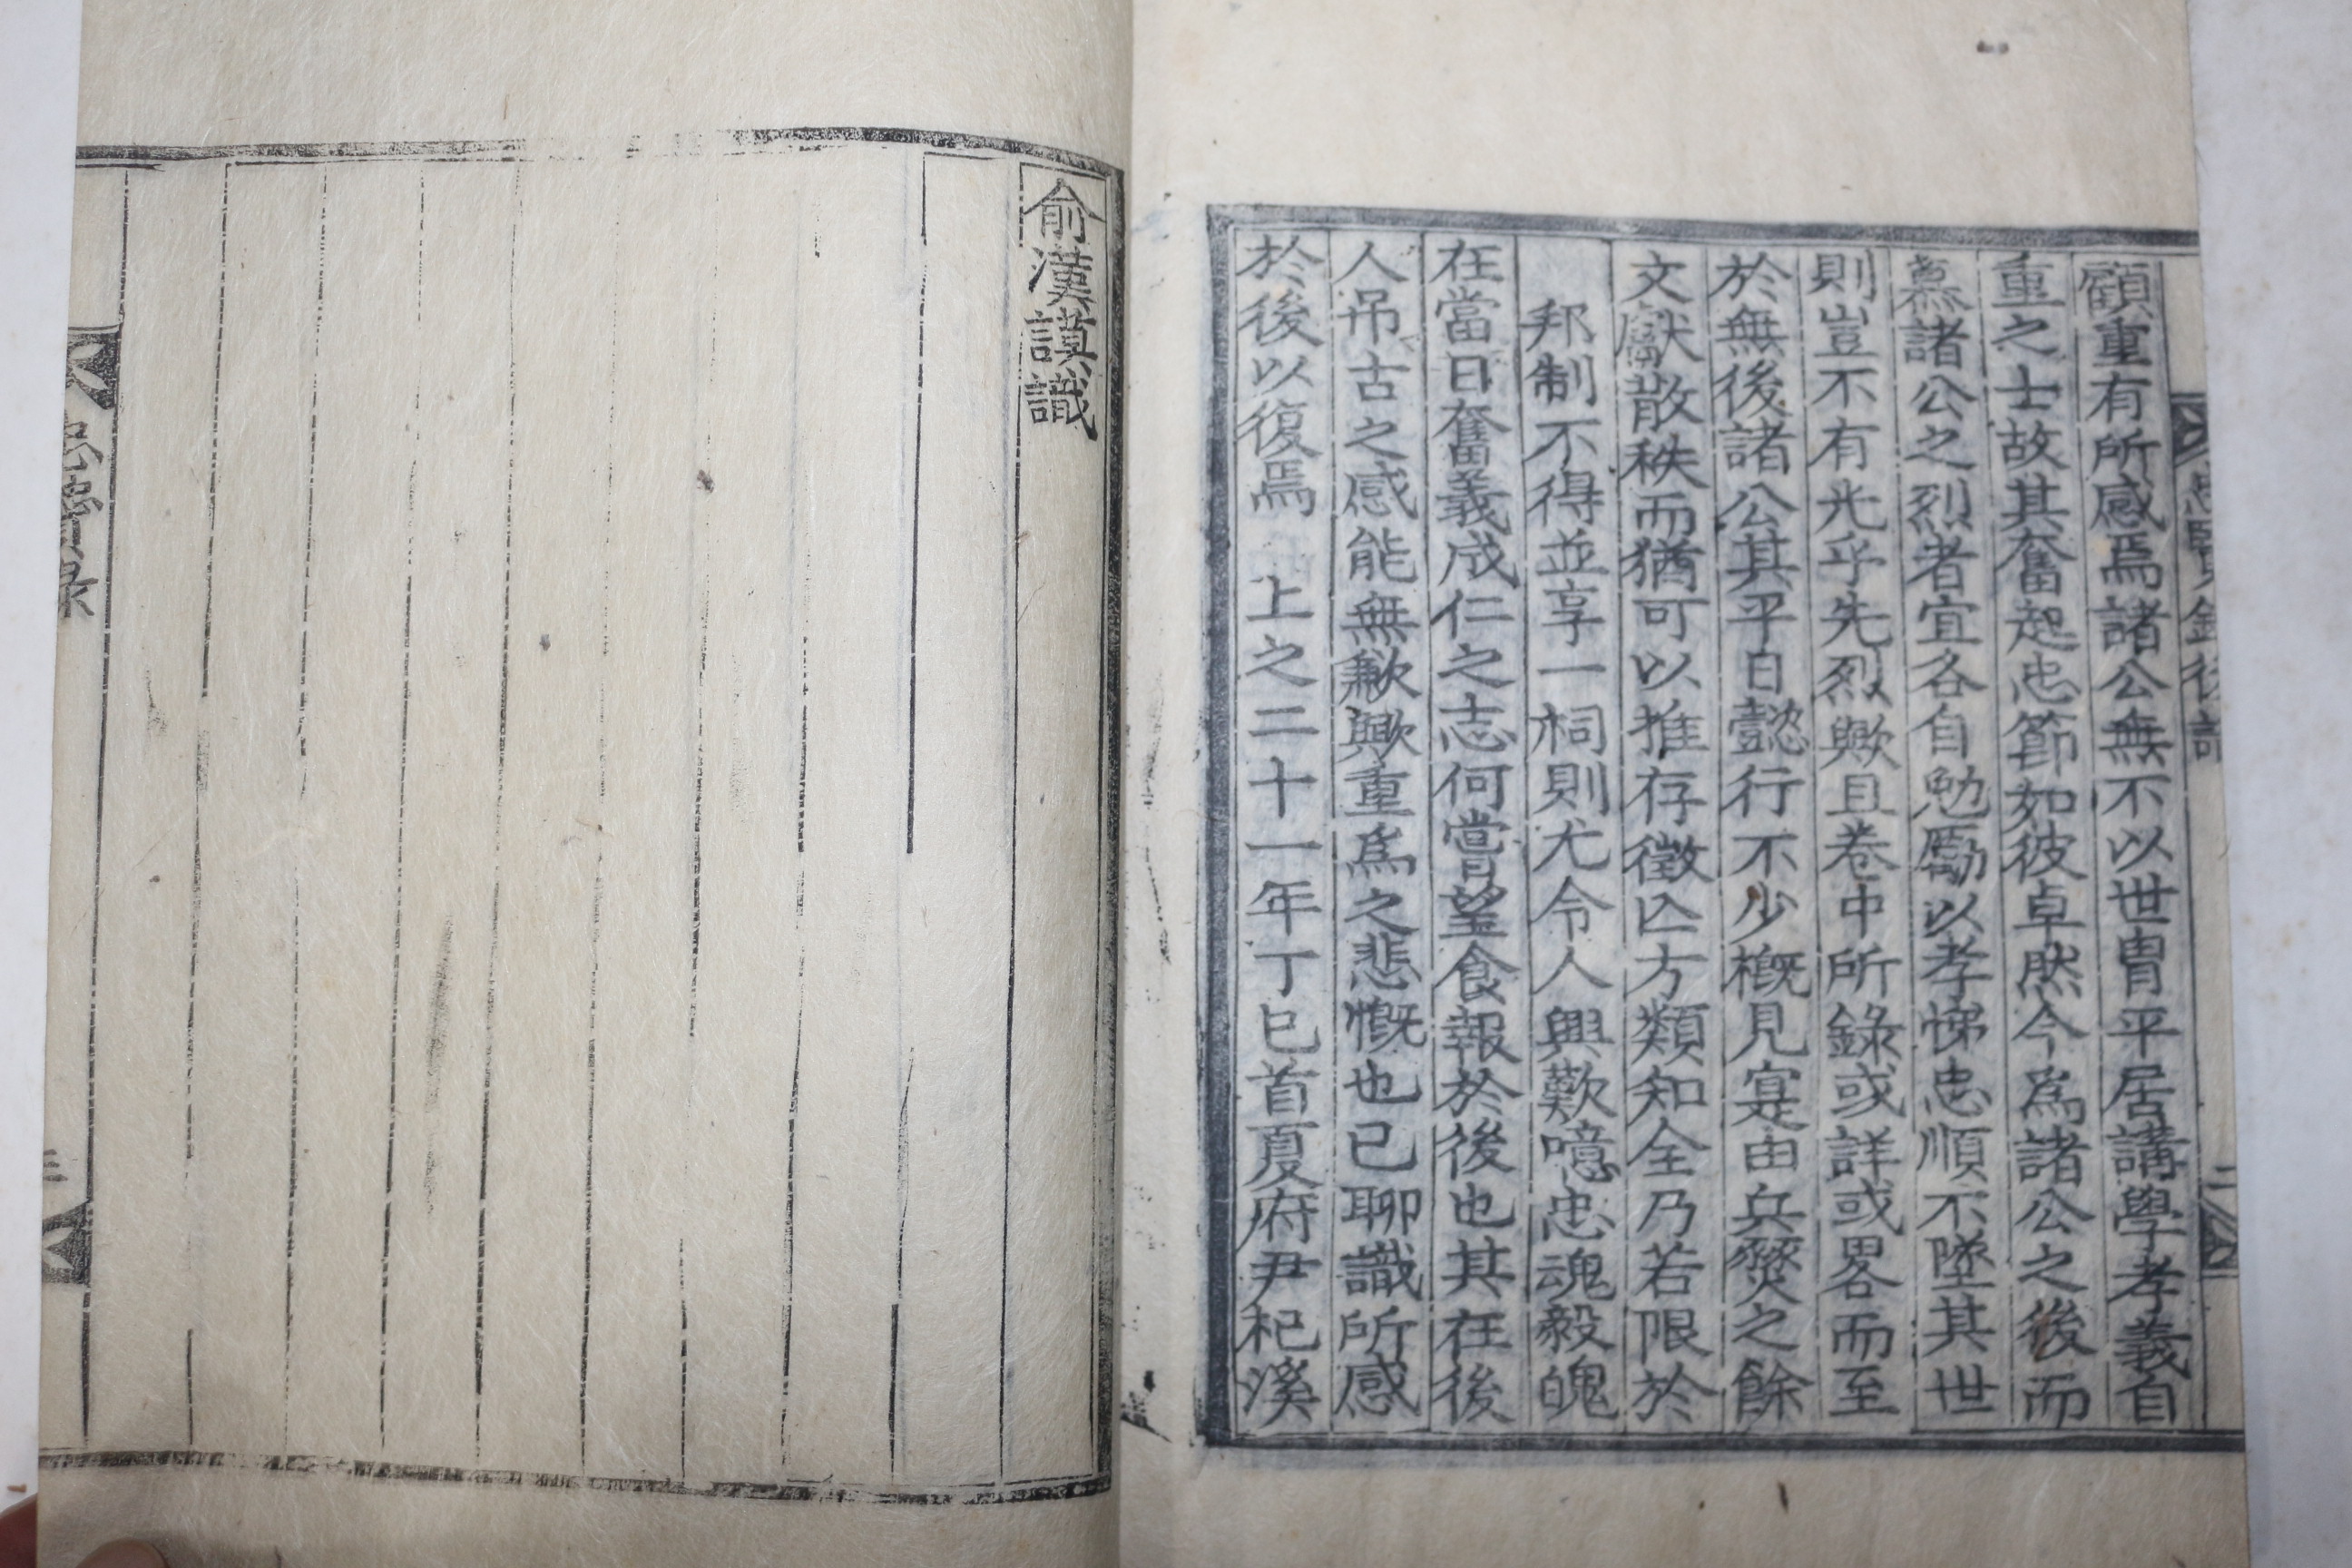 忠賢錄後記
二
顧重有所感焉諸公無不以世冑平居講學孝義自
重之士故其奮起忠節如彼卓然今爲諸公之後而
慕諸公之烈者宜各自勉勵以孝悌忠順不墜其世
則豈不有光乎先烈歟且卷中所錄或詳或畧而至
於無後諸公其平日懿行不少槪見寔由兵燹之餘
文獻散秩而猶可以推存徵亾方類知全乃若限於
邦制不得並享一祠則尤令人興歎噫忠魂毅魄
在當日奮義成仁之志何嘗望食報於後也其在後
人吊古之感能無歉歟重爲之悲慨也已聊識所感
於後以復焉 上之二十一年丁巳首夏府尹杞溪
俞漢謨識
忠賢錄
三